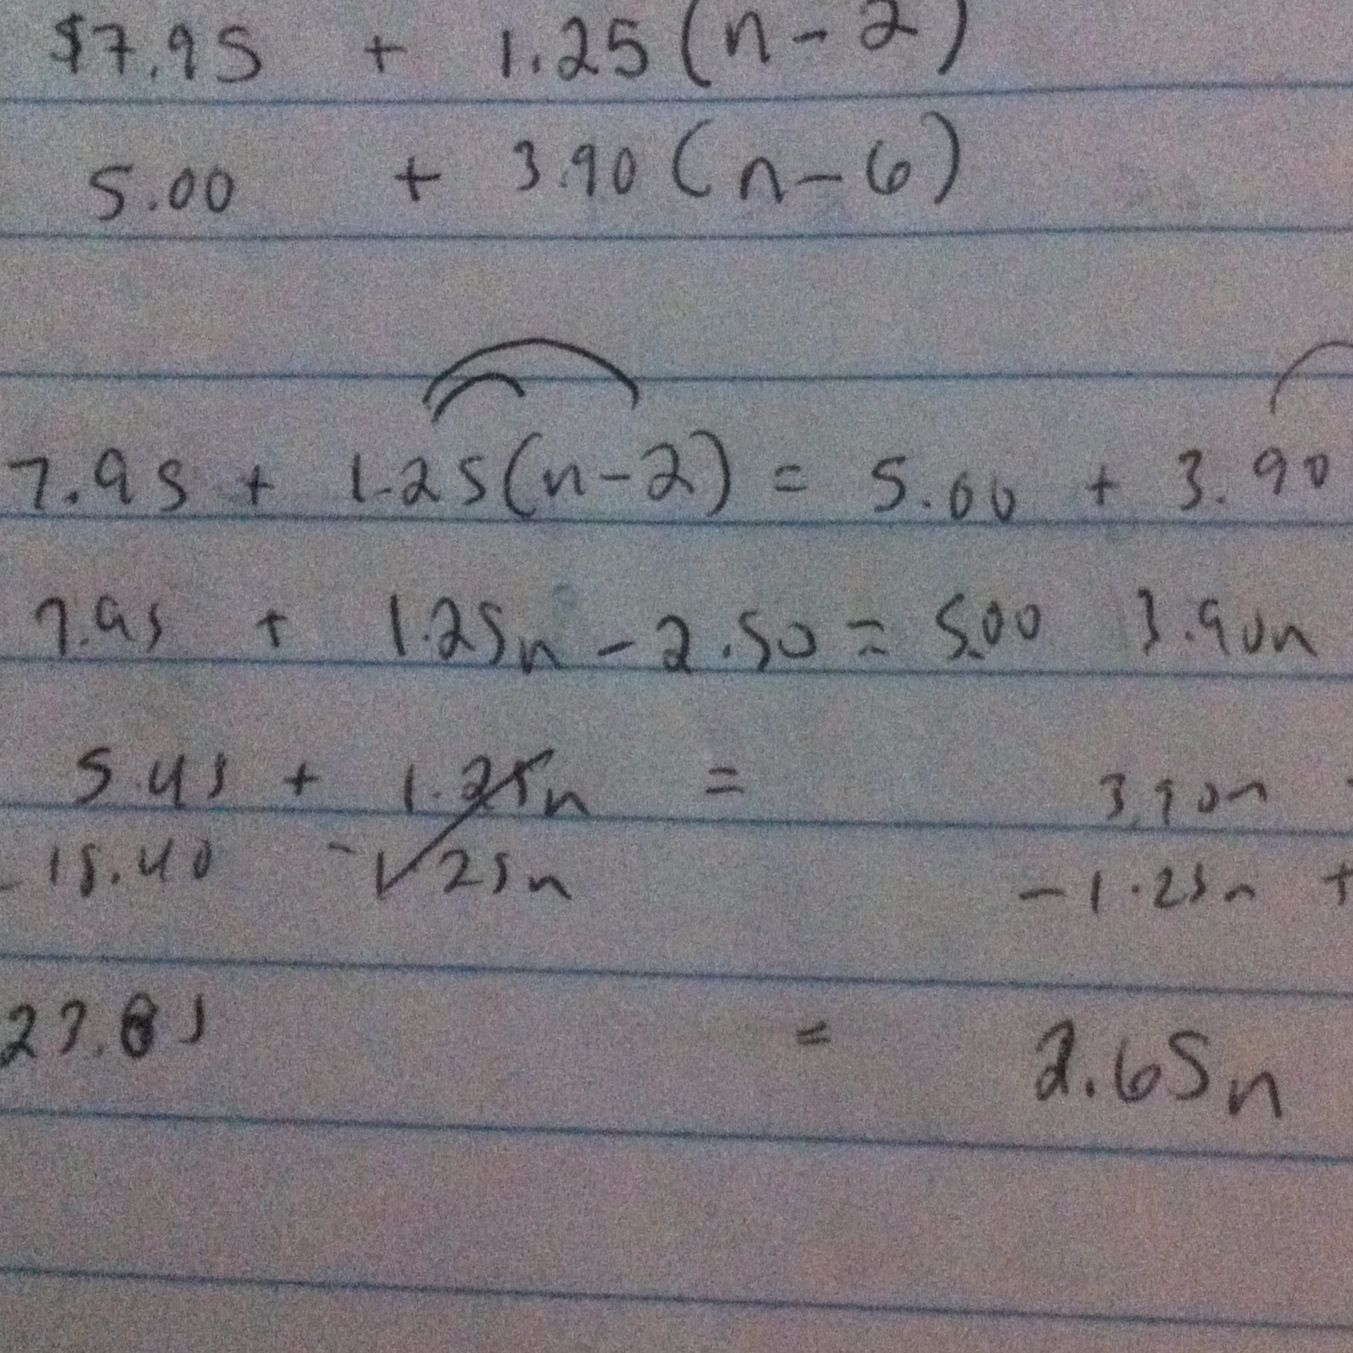 $7.95 + 1.25 (n - 2)
5.00 + 3.90 (n - 6)
7.95 + 1.25(n - 2) = 5.00 + 3.90
7.95 + 1.25n - 2.50 = 5.00 3.90n
5.45 + 1.25n = 3.90n
18.40 - 1.25n - 1.25n +
23.85 = 2.65n